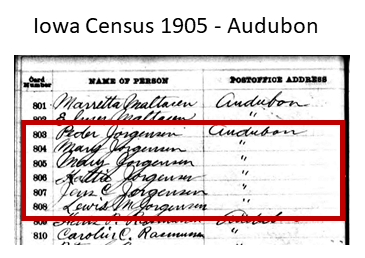 Iowa Census 1905 - Audubon
Card Number NAME OF PERSON POSTOFFICE ADDRESS
801 Marretta Audubon
802 "
803 Peder Jorgensen Audubon
804 Mary Jorgensen "
805 Mary Jorgensen "
806 Hattie Jorgensen "
807 Jens C Jorgensen "
808 Lewis M Jorgensen "
809
810 Caroline C. Rasmussen "